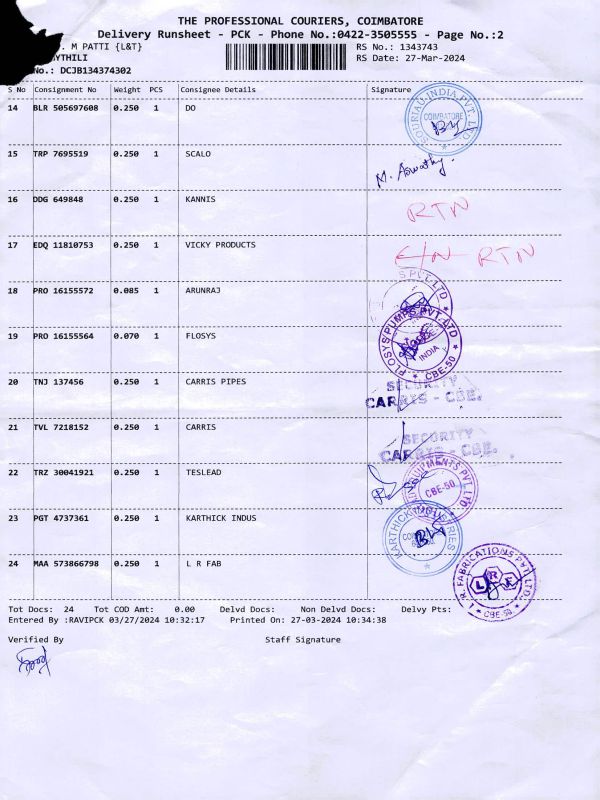 THE PROFESSIONAL COURIERS, COIMBATORE
Delivery Runsheet - PCK - Phone No.:0422-3505555 - Page No.:2
. M PATTI {L&T} RS No.: 1343743
YTHILI RS Date: 27-Mar-2024
No.: DCJB134374302
S No Consignment No Weight PCS Consignee Details Signature
14 BLR 505697608 0.250 1 DO
SOURIAU INDIA PVT. LTD. COIMBATORE
15 TRP 7695519 0.250 1 SCALO
M. Aswathy.
16 DDG 649848 0.250 1 KANNIS RTN
17 EDQ 11810753 0.250 1 VICKY PRODUCTS RTN
18 PRO 16155572 0.085 1 ARUNRAJ
S PVT. LTD
19 PRO 16155564 0.070 1 FLOSYS
FLOSYS PUMPS PVT. LTD INDIA CBE-50
20 TNJ 137456 0.250 1 CARRIS PIPES SECURITY
CARRIS - CBE.
21 TVL 7218152 0.250 1 CARRIS SECURITY
CARRIS - CBE.
22 TRZ 30041921 0.250 1 TESLEAD
PVT LTD CBE-50
23 PGT 4737361 0.250 1 KARTHICK INDUS
KARTHICK INDUSTRIES
24 MAA 573866798 0.250 1 L R FAB
L.R. FABRICATIONS PVT. LTD., L R F CBE-50
Tot Docs: 24 Tot COD Amt: 0.00 Delvd Docs: Non Delvd Docs: Delvy Pts:
Entered By :RAVIPCK 03/27/2024 10:32:17 Printed On: 27-03-2024 10:34:38
Verified By Staff Signature